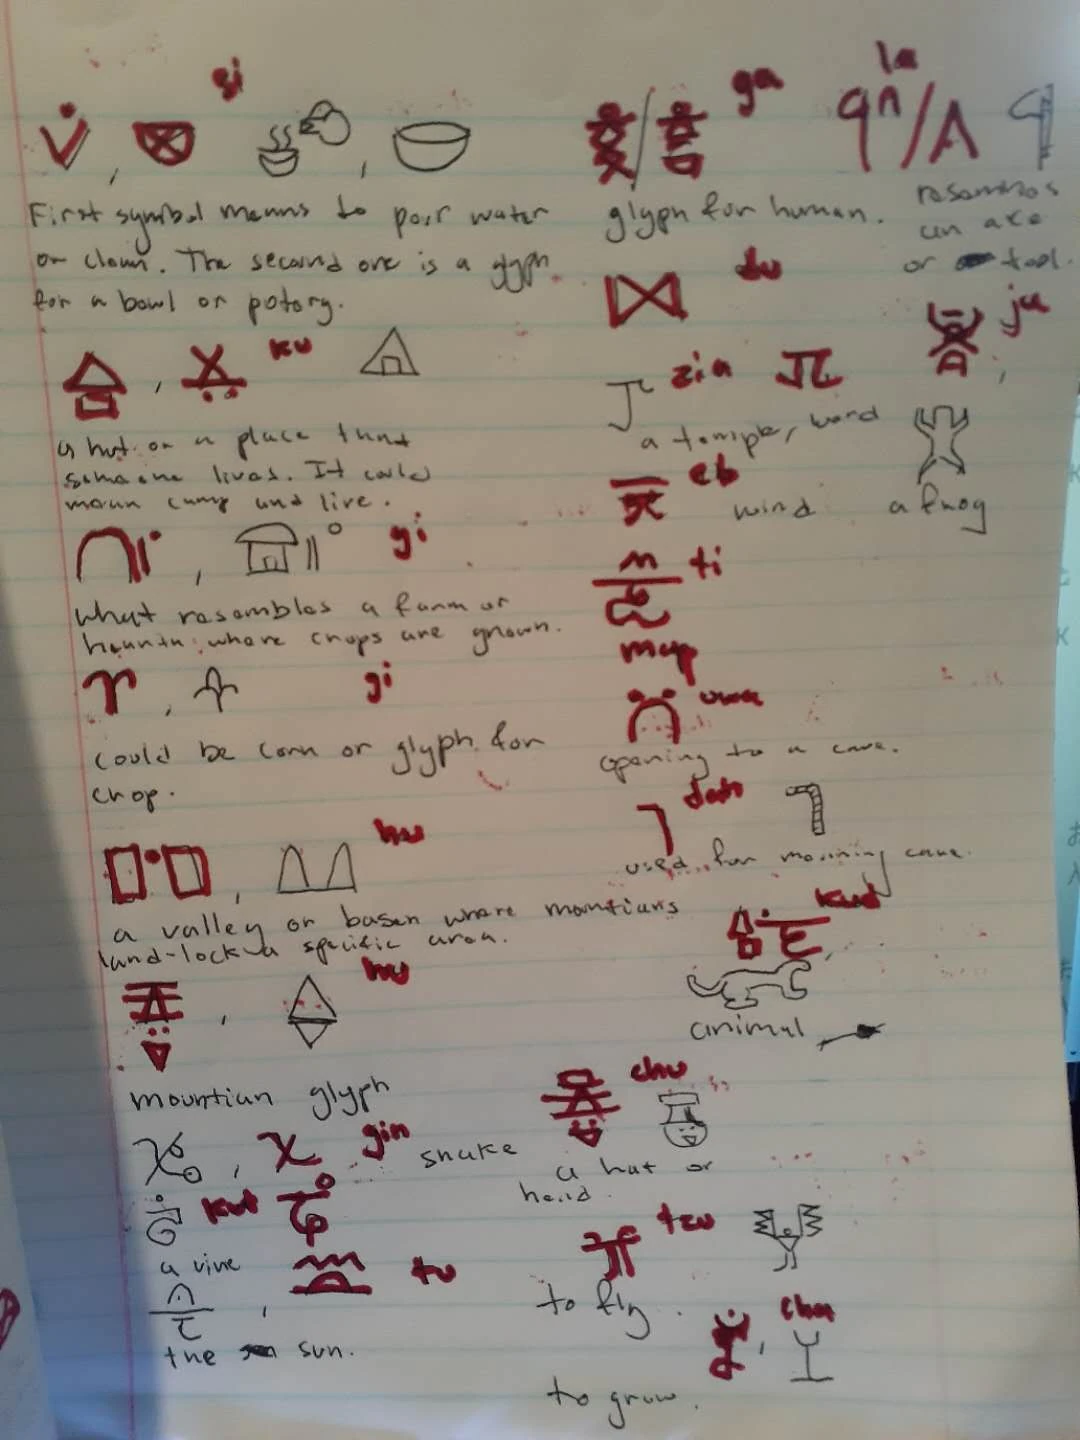 si
First symbol means to poir water
or clown. The second one is a glyph
for a bowl or potory.
ku
a hut or a place that
someone lives. It could
mean camp and live.
gi
what resembles a farm or
where crops are grown.
gi
could be corn or glyph for
crop.
a valley or basen where mountians
land-lock a specific area.
hu
mountian glyph
gin
snake
kut
a vine
tu
the sun.
ga
glyph for human.
la
resembles
an axe
or tool.
du
ju
a frog
zia
a temple, word
eb
wind
ti
map
uma
opening to a cave.
used for
kud
animal
chu
a hat or
head.
tzu
to fly.
cha
to grow.